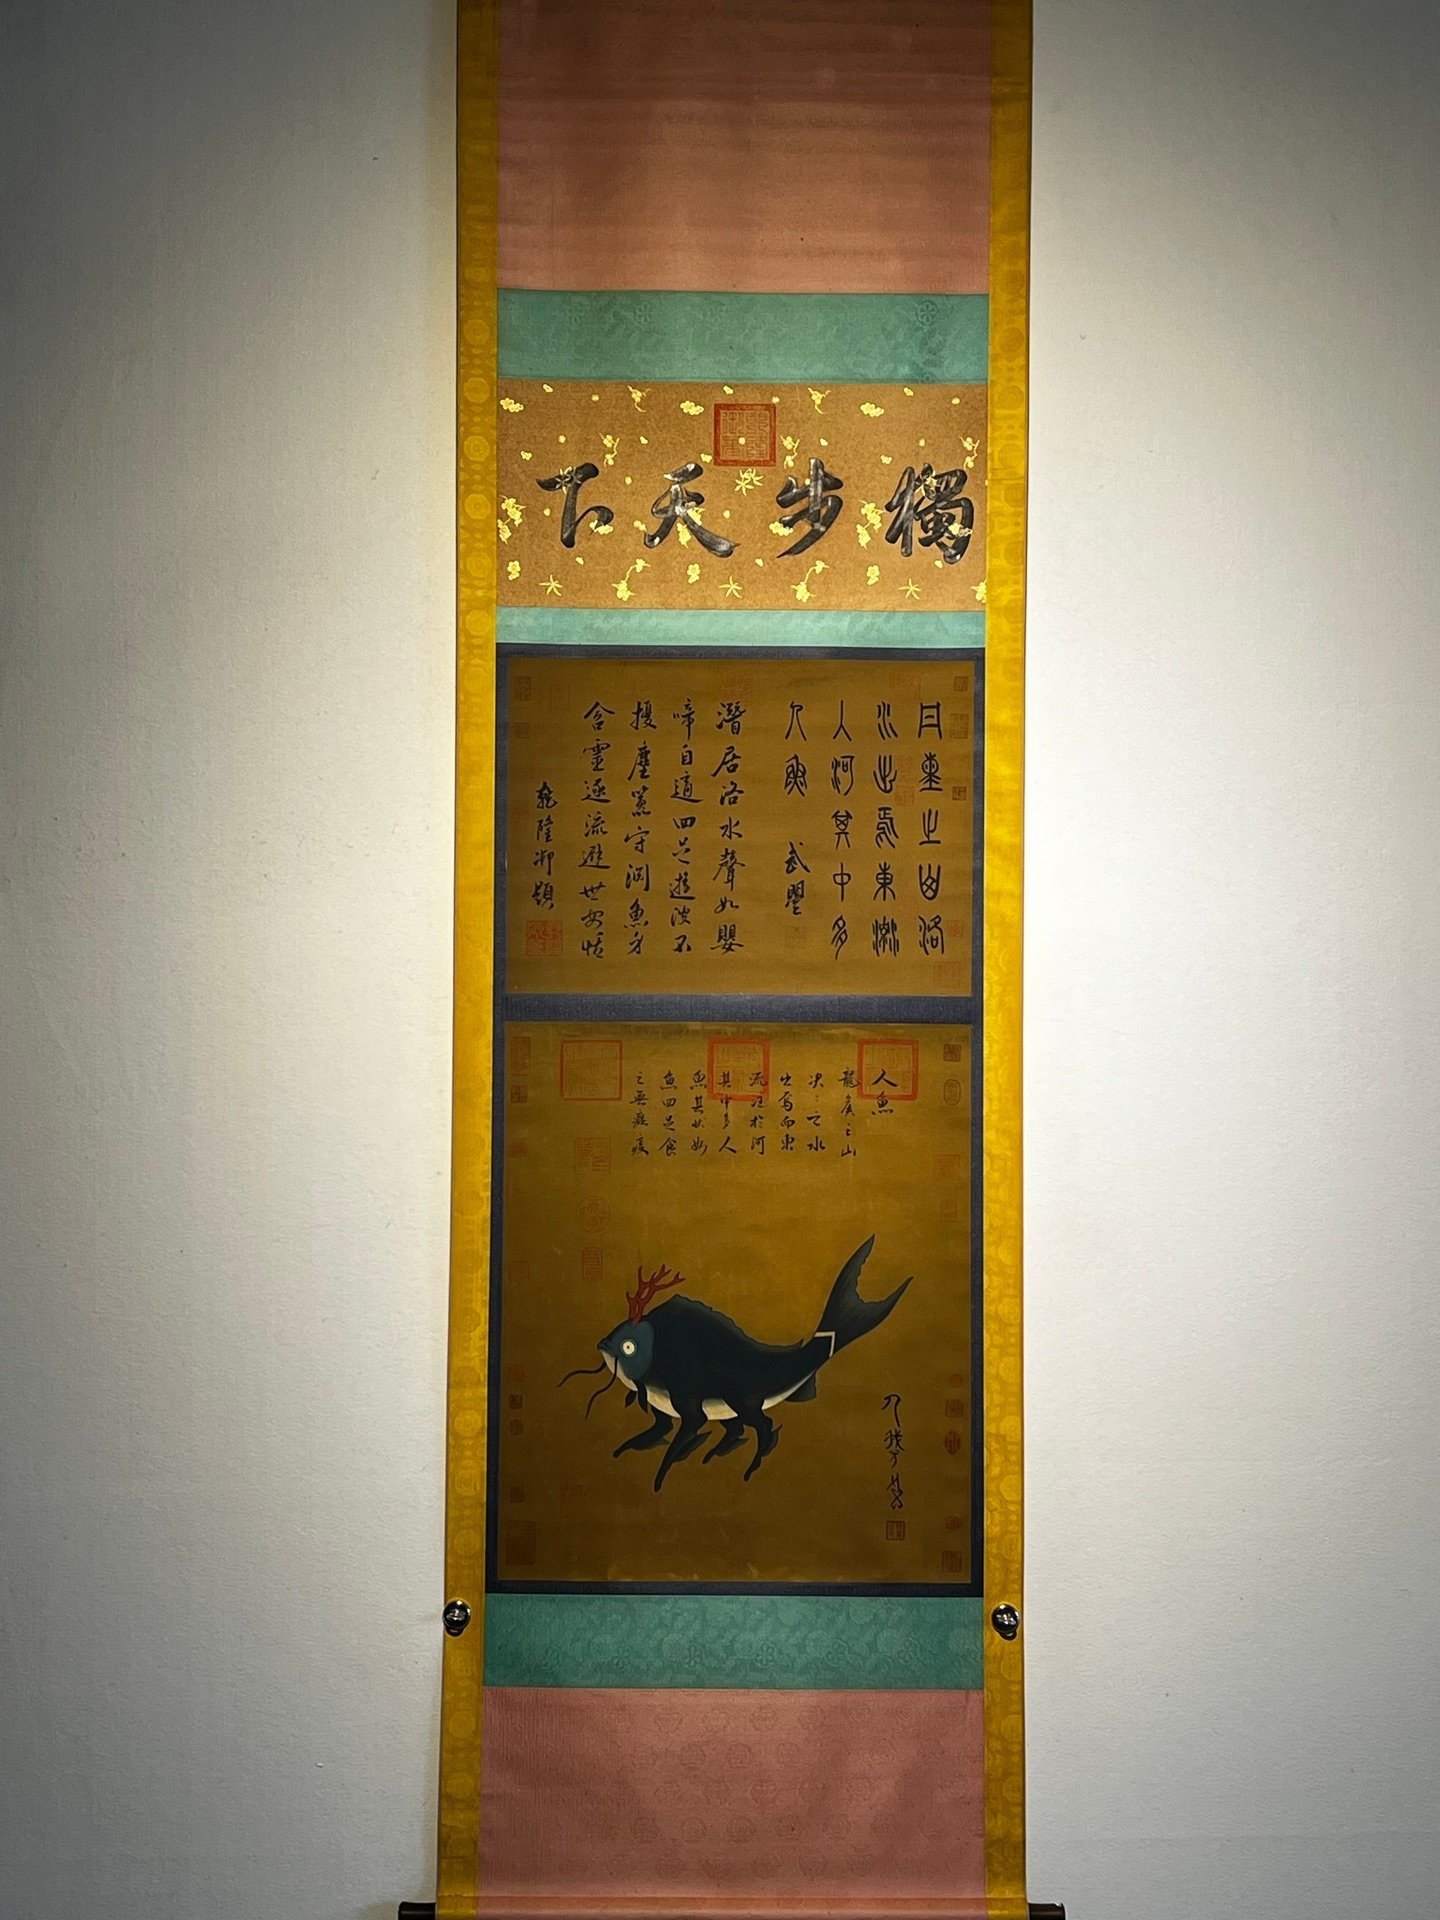 獨步天下
之山洛
水出焉東漸
入河其中多
人魚 武曌
潛居洛水聲如嬰
啼自適四足遊波不
擾塵囂守淵魚身
含靈逐流避世安恬
乾隆御題
人魚
龍侯之山
決〻之水
出焉而東
流注於河
其中多人
魚其狀如
魚四足食
之無癡疾